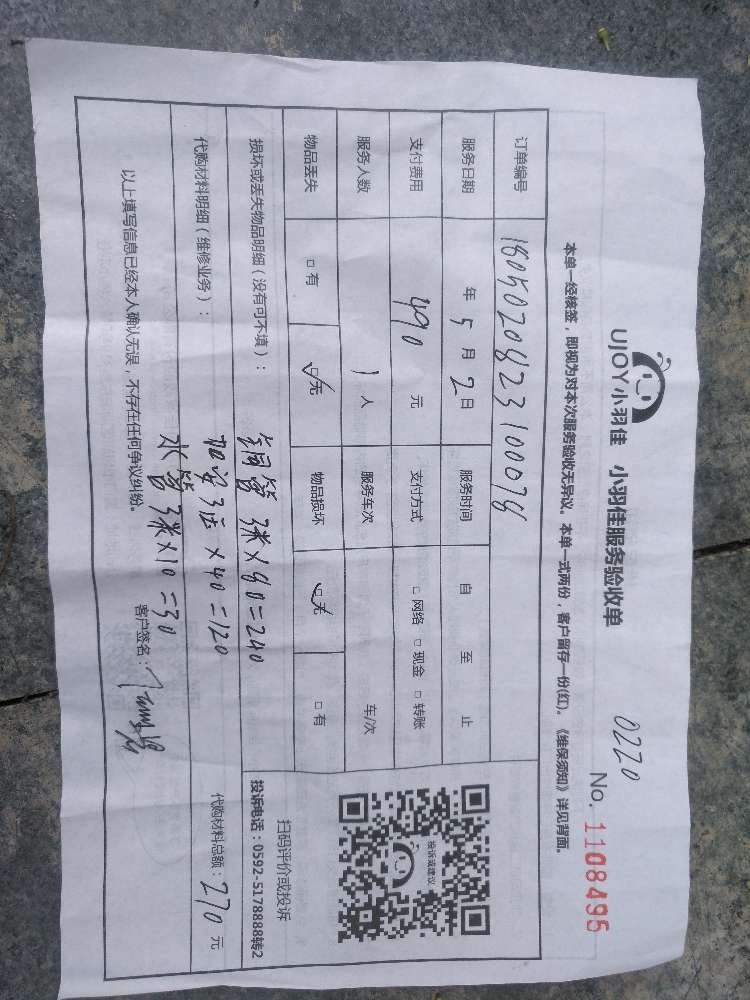 0220
UJOY小羽佳 小羽佳服务验收单
No. 1108495
本单一经核签，即视为对本次服务验收无异议。本单一式两份，客户留存一份(红)。《维保须知》详见背面。
订单编号
服务日期 年 5 月 2 日 服务时间 自 至 止
支付费用 490 元 支付方式 □ 网络 □ 现金 □ 转账
服务人数 1 人 服务车次 车/次
物品丢失 □ 有 ☑无 物品损坏 ☑无 □ 有
损坏或丢失物品明细（没有可不填）：
铜管 3米×80=240
代购材料明细（维修业务）：
×40=120
水管 3米×10=30
代购材料总额：270 元
以上填写信息已经本人确认无误，不存在任何争议纠纷。
客户签名：
投诉或建议
扫码评价或投诉
投诉电话：0592-5178888转2